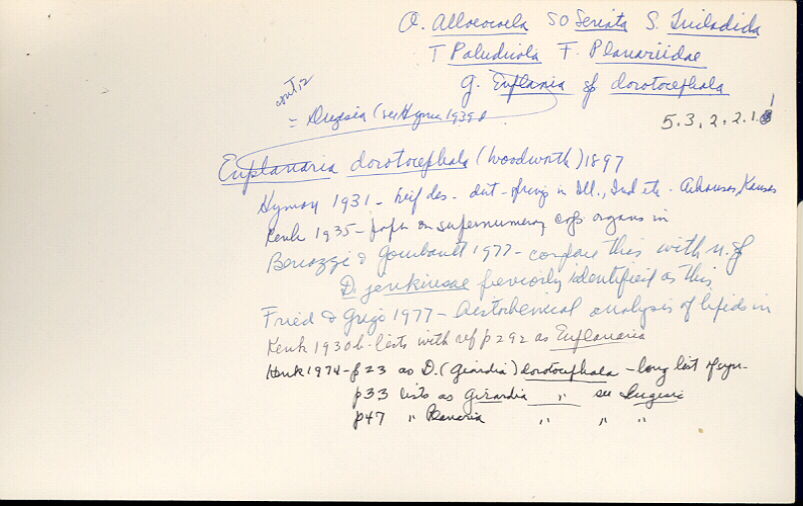 O. Alloeocoela SO Seriata S. Tricladida
T Paludicola F. Planariidae
g. Euplanaria sp dorotocephala
cont, 12
= Dugesia (see Hyman 1939
5.3.2.2.1.
Euplanaria dorotocephala (Woodworth) 1897
Hyman 1931 - brief des. - dist - of wigs in Ill., Ind etc. Arkansas, Kansas
Kenk 1935 - paper on supernumerary cop organs in
Benazzi & Gourbault 1977 - compare this with n. of
D. jenkinsae previously identified as this
Fried & Grigo 1977 - histochemical analysis of lipids in
Kenk 1930b - lists with ref p 292 as Euplanaria
Kenk 1974 - p 23 as D. (Girardia) dorotocephala - long list of syn.
p33 lists as Girardia " see Dugesia
p47 " Planaria " " "